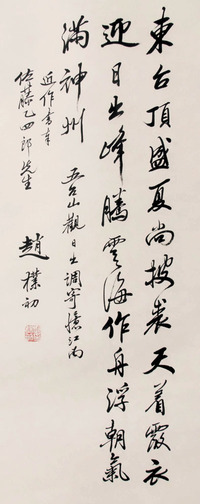 東台頂盛夏尚披裘天着霞衣
迎日出峰騰雲海作舟浮朝氣
滿神州
五台山觀日出調寄憶江南
近作書奉
佐藤乙四郎先生
趙樸初